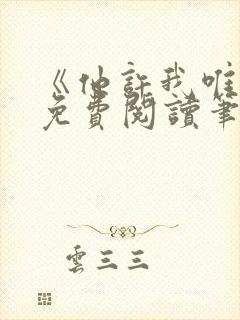 《他許我唯
免費閱讀筆
雲三三